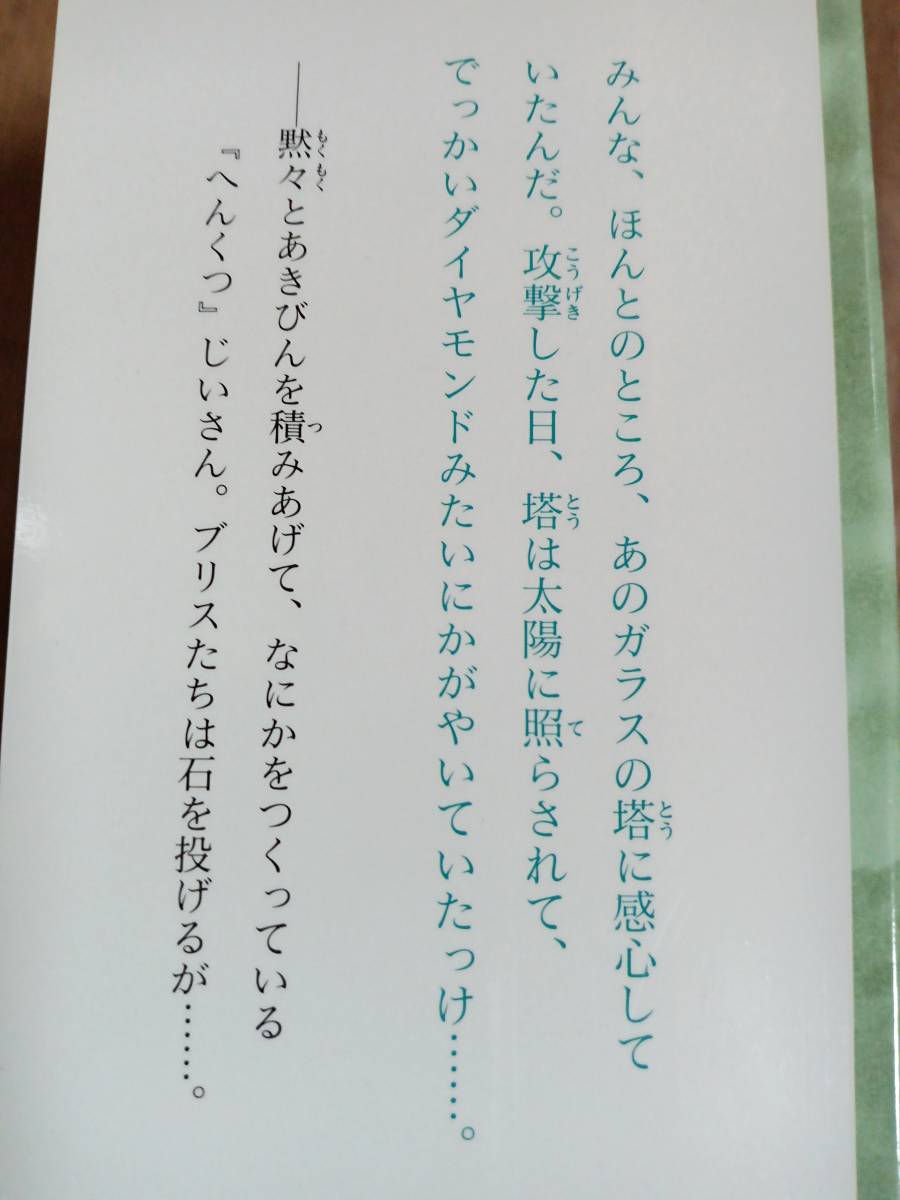 みんな、ほんとのところ、あのガラスの塔に感心して
いたんだ。攻撃した日、塔は太陽に照らされて、
でっかいダイヤモンドみたいにかがやいていたっけ……。
――黙々とあきびんを積みあげて、なにかをつくっている
『へんくつ』じいさん。ブリスたちは石を投げるが……。